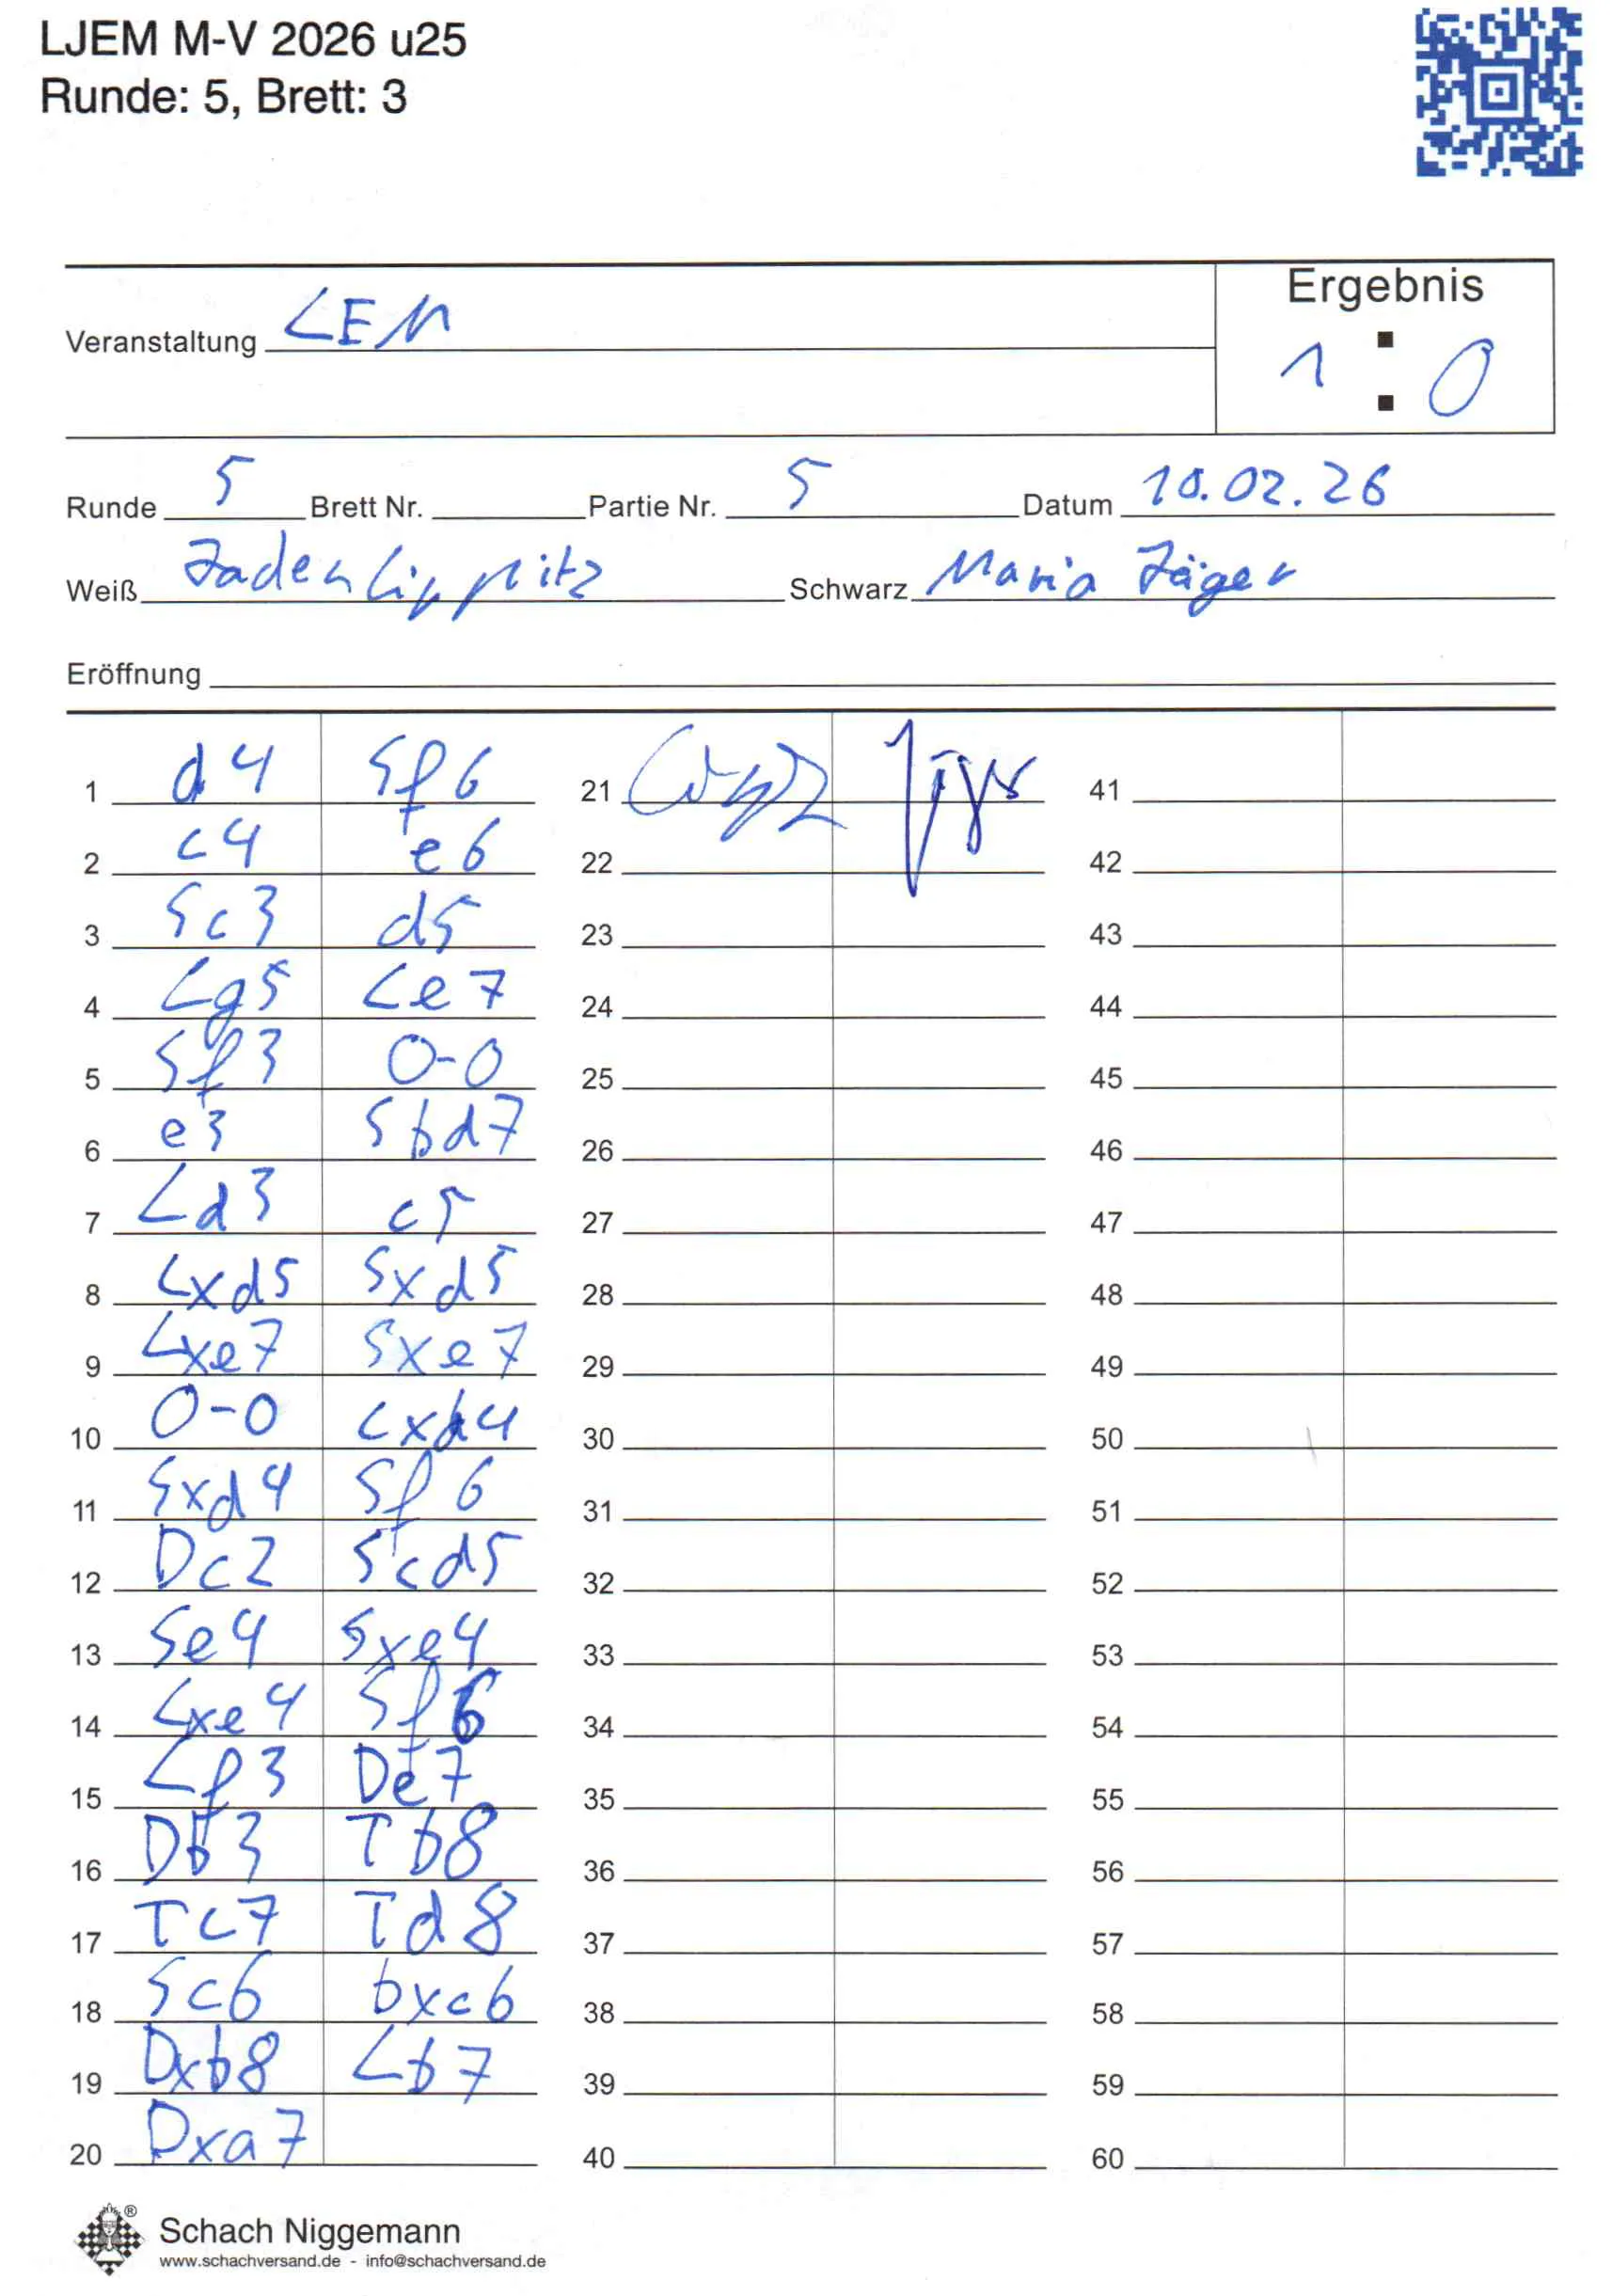 LJEM M-V 2026 u25
Runde: 5, Brett: 3
Ergebnis
Veranstaltung LEM
1 : 0
Runde 5 Brett Nr. Partie Nr. 5 Datum 10.02.26
Weiß Jaden Lippitz Schwarz Maria Jäger
Eröffnung
1 d4 Sf6 21 41
2 c4 e6 22 42
3 Sc3 d5 23 43
4 Lg5 Le7 24 44
5 Sf3 0-0 25 45
6 e3 Sbd7 26 46
7 Ld3 c5 27 47
8 cxd5 Sxd5 28 48
9 Lxe7 Sxe7 29 49
10 0-0 cxd4 30 50
11 Sxd4 Sf6 31 51
12 Dc2 Scd5 32 52
13 Se4 Sxe4 33 53
14 Lxe4 Sf6 34 54
15 Lf3 De7 35 55
16 Db3 Tb8 36 56
17 Tc7 Td8 37 57
18 Sc6 bxc6 38 58
19 Dxb8 Lb7 39 59
20 Dxa7 40 60
Schach Niggemann
www.schachversand.de - info@schachversand.de